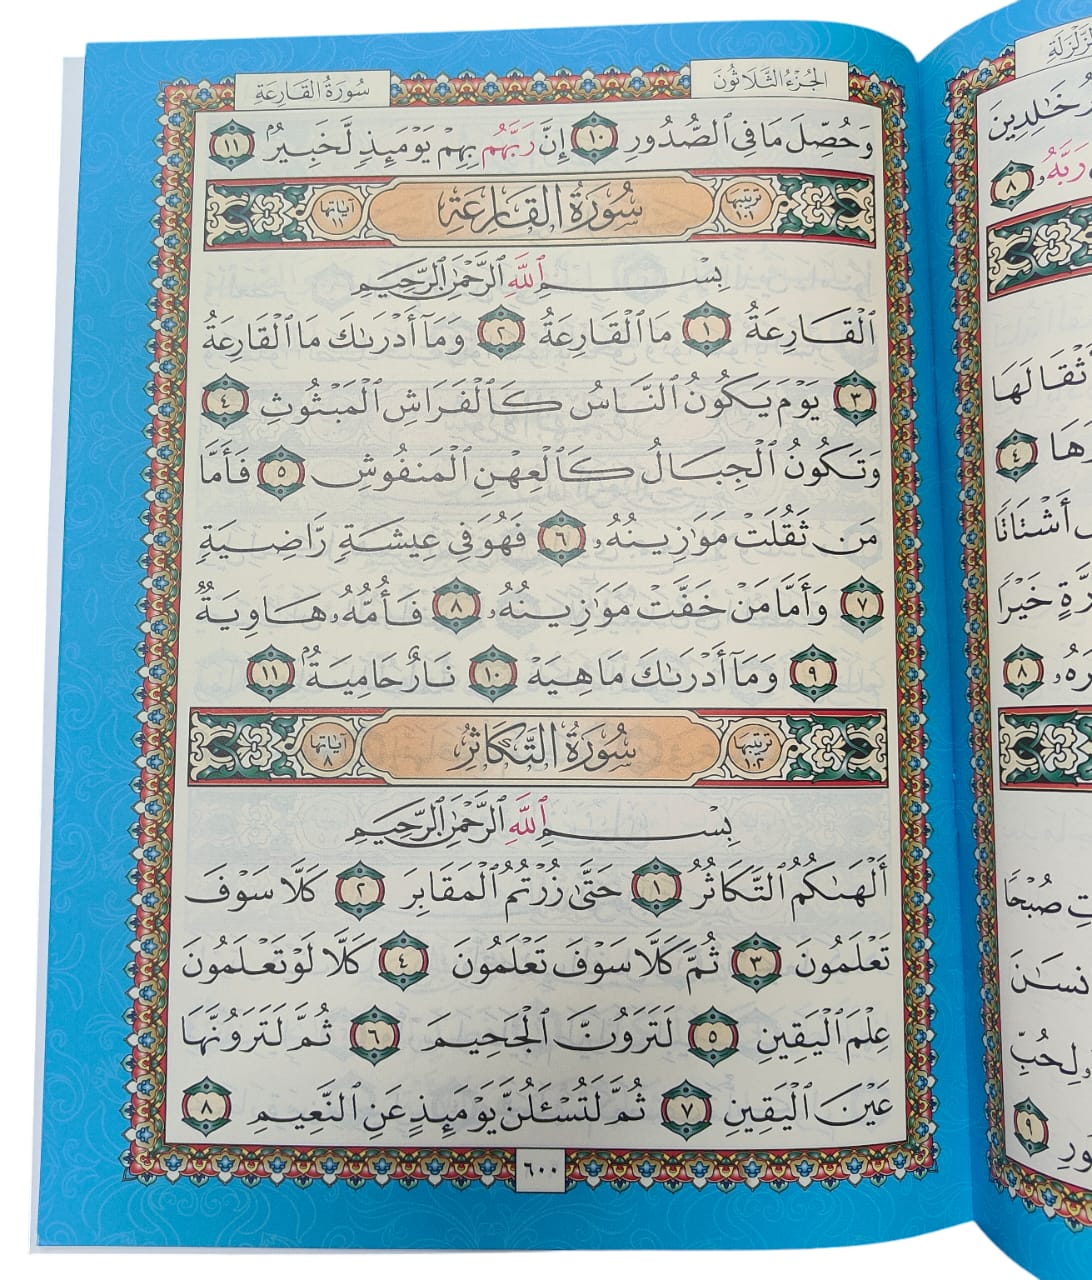 سُورَةُ القَارِعَةِ
الجُزْءُ الثَّلَاثُونَ
وَحُصِّلَ مَا فِي ٱلصُّدُورِ ١٠ إِنَّ رَبَّهُم بِهِمْ يَوْمَئِذٍ لَّخَبِيرٌۢ ١١
ترتيبها ١٠١ سُورَةُ القَارِعَةِ آياتها ١١
بِسْمِ ٱللَّهِ ٱلرَّحْمَٰنِ ٱلرَّحِيمِ
ٱلْقَارِعَةُ ١ مَا ٱلْقَارِعَةُ ٢ وَمَآ أَدْرَىٰكَ مَا ٱلْقَارِعَةُ
٣ يَوْمَ يَكُونُ ٱلنَّاسُ كَٱلْفَرَاشِ ٱلْمَبْثُوثِ ٤
وَتَكُونُ ٱلْجِبَالُ كَٱلْعِهْنِ ٱلْمَنفُوشِ ٥ فَأَمَّا
مَن ثَقُلَتْ مَوَٰزِينُهُۥ ٦ فَهُوَ فِي عِيشَةٍ رَّاضِيَةٍ
٧ وَأَمَّا مَنْ خَفَّتْ مَوَٰزِينُهُۥ ٨ فَأُمُّهُۥ هَاوِيَةٌ
٩ وَمَآ أَدْرَىٰكَ مَا هِيَهْ ١٠ نَارٌ حَامِيَةٌۢ ١١
ترتيبها ١٠٢ سُورَةُ التَّكَاثُرِ آياتها ٨
بِسْمِ ٱللَّهِ ٱلرَّحْمَٰنِ ٱلرَّحِيمِ
أَلْهَىٰكُمُ ٱلتَّكَاثُرُ ١ حَتَّىٰ زُرْتُمُ ٱلْمَقَابِرَ ٢ كَلَّا سَوْفَ
تَعْلَمُونَ ٣ ثُمَّ كَلَّا سَوْفَ تَعْلَمُونَ ٤ كَلَّا لَوْ تَعْلَمُونَ
عِلْمَ ٱلْيَقِينِ ٥ لَتَرَوُنَّ ٱلْجَحِيمَ ٦ ثُمَّ لَتَرَوُنَّهَا
عَيْنَ ٱلْيَقِينِ ٧ ثُمَّ لَتُسْـَٔلُنَّ يَوْمَئِذٍ عَنِ ٱلنَّعِيمِ ٨
٦٠٠
خَٰلِدِينَ
رَبَّهُۥ ٨
٤
أَشْتَاتًا
خَيْرًا
٨
صُبْحًا
لِحُبِّ
٩